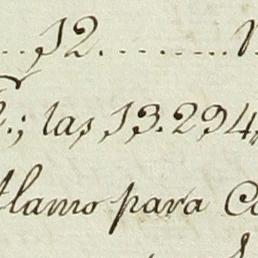 ...12.........
; las 13.294,
Alamo para